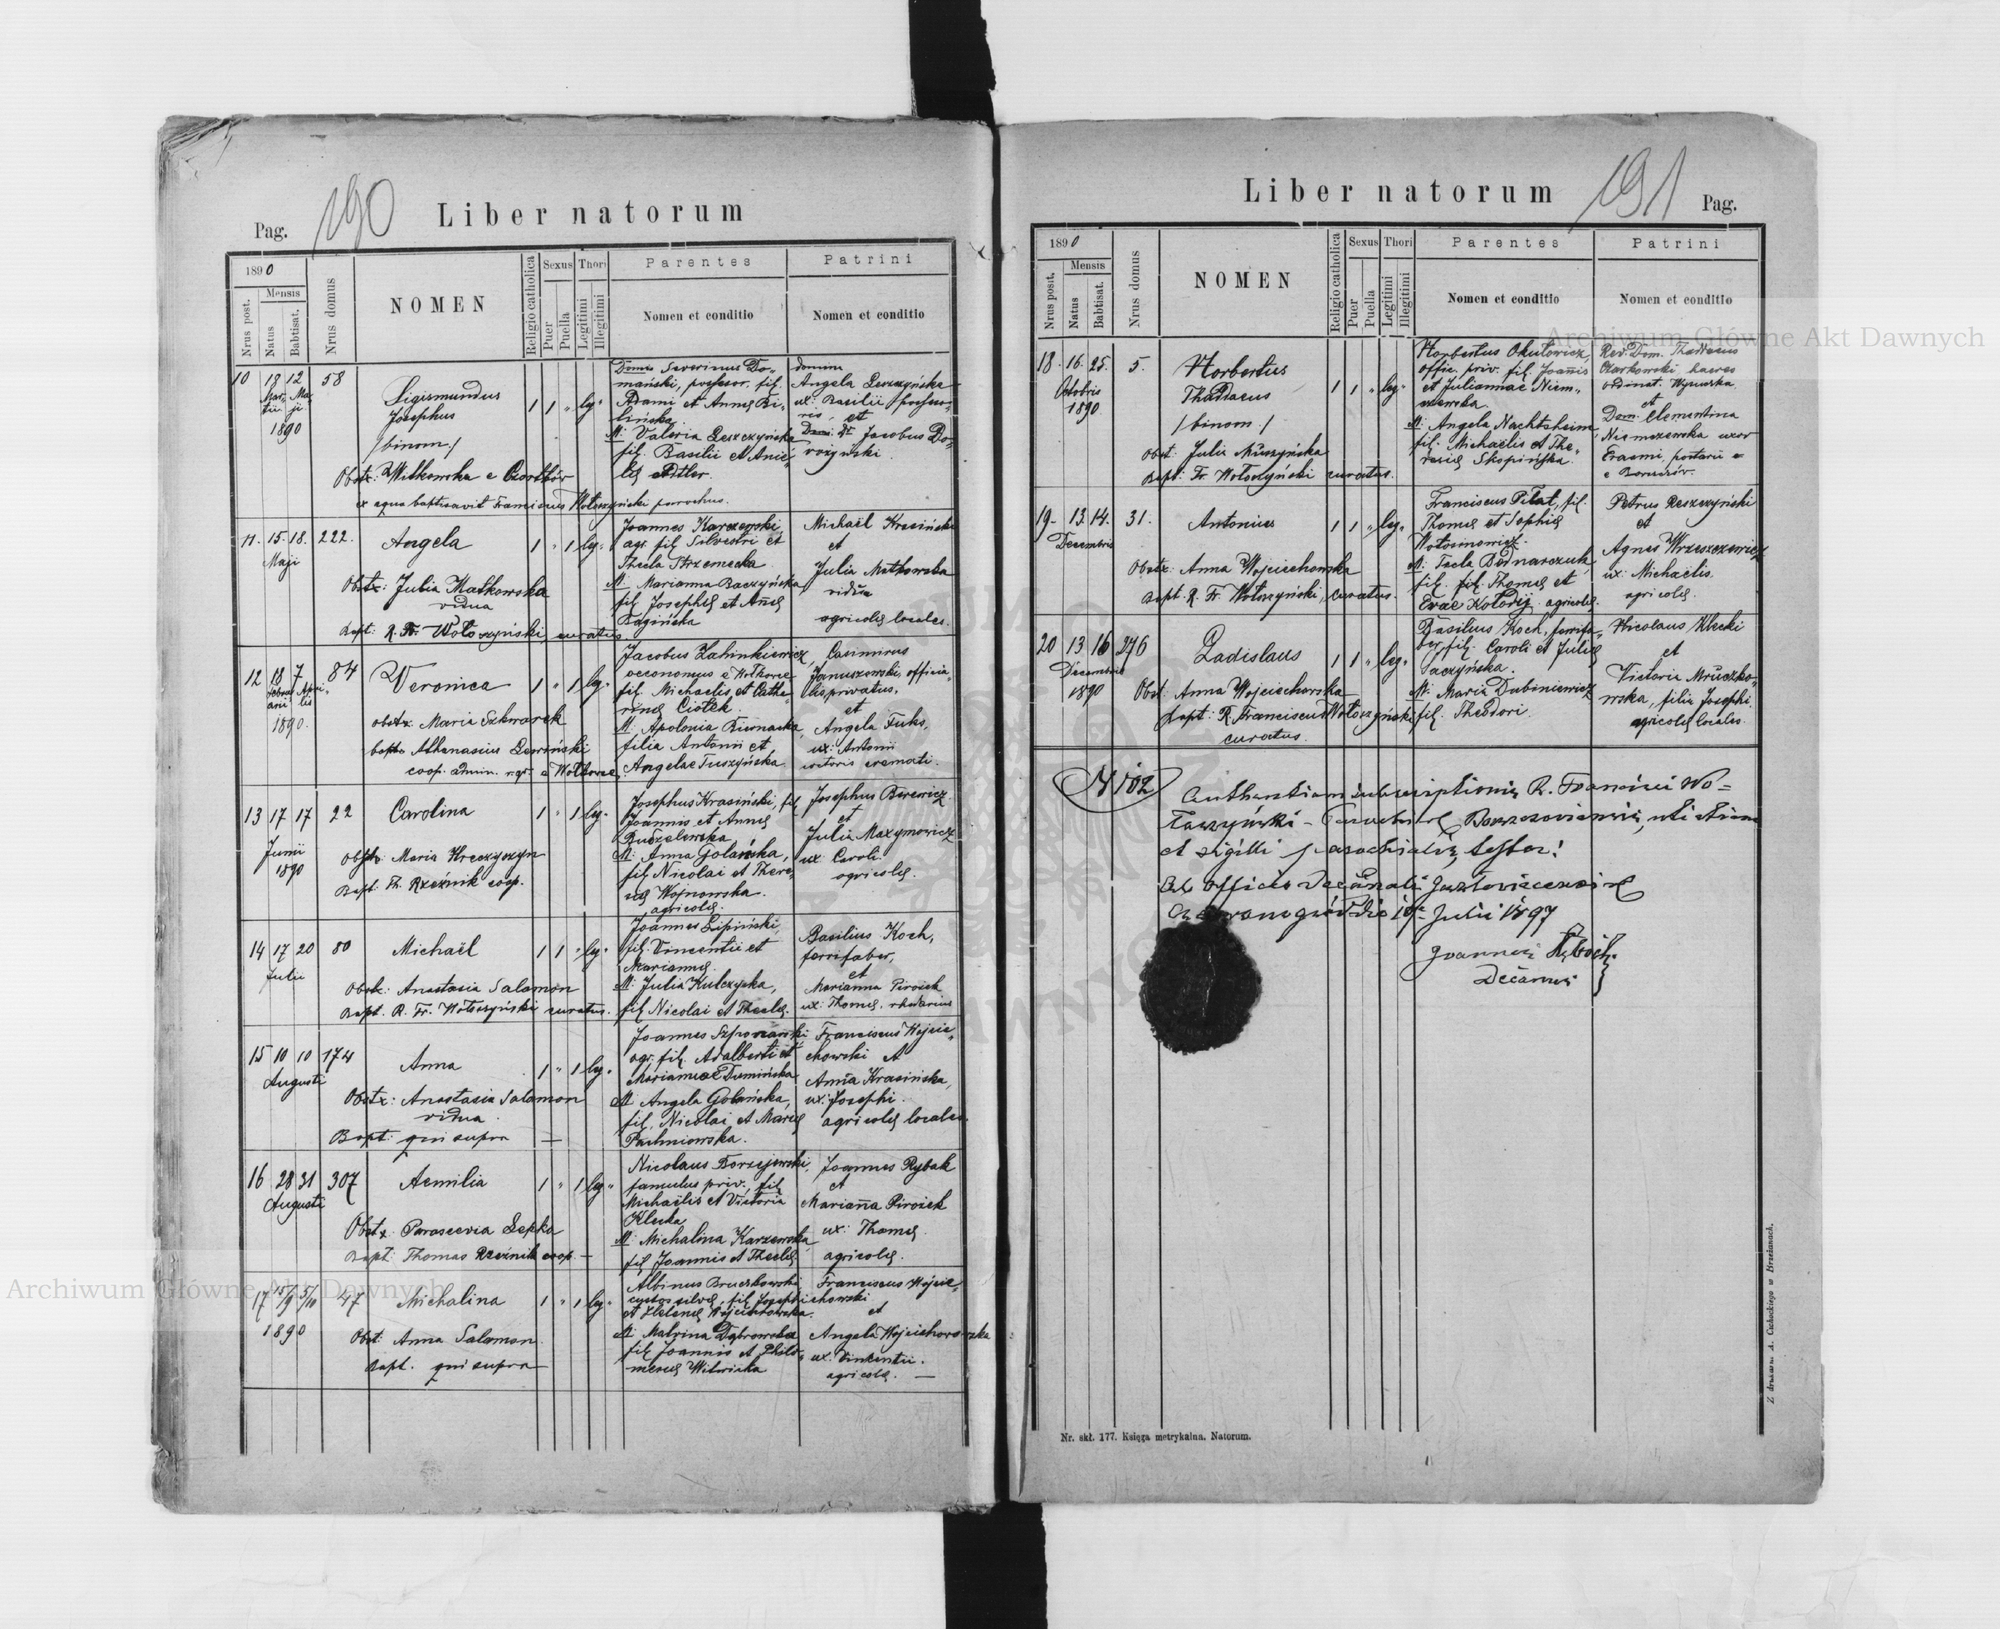 Pag. 190 Liber natorum
1890
Nrus post.
Mensis
Natus
Babtisat.
Nrus domus
NOMEN
Religio catholica
Sexus
Puer
Puella
Thori
Legitimi
Illegitimi
Parentes
Nomen et conditio
Patrini
Nomen et conditio
10 18 12 58
Martii Maji
1890
Sigismundus
Josephus
/binom./
1 1 " leg.
Obst.: Witkowska e Czortków
ex aqua baptisavit Franciscus Wołoszyński parochus.
Severinus Do-
mański, professor, fil.
Adami et Annae Bi-
lińska
M: Valeria Leszczyńska
fil. Basilii et Anie-
lae Adtler
domina
Angela Leszczyńska
ux: Basilii professo-
ris, et
Jacobus Do-
rożynski.
11. 15. 18. 222.
Maji
Angela
1 " 1 leg.
Obstx: Julia Matkowska
vidua
Bapt: R. Fr. Wołoszyński curatus
Joannes Karczewski
agr. fil. Silvestri et
Thecla Strzemecka
M: Marianna Baczyńska
fil. Josephi et Annae
Bagińska
Michaël Krasiński
et
Julia Matkowska
vidua
agricolae locales.
12 18 7 84
Februarii Aprilis
1890.
Veronica
1 " 1 leg.
obstx. Maria Szkwarek
Athanasius Lewiński
coop. admin. r. gr. e Wołkowce
Jacobus Zahinkiewicz
oeconomus e Wołkowce
fil. Michaelis et Cathe-
rinae Ciołek
M. Apolonia Biernacka,
filia Antonii et
Angelae Tuszyńska
Casimirus
Januszowski, officia-
lis privatus,
et
Angela Fuks,
ux: Antonii
coctoris cremati.
13 17 17 22
Junii
1890
Carolina
1 " 1 leg.
Obstx: Maria Hreczyszyn
Bapt: Th. Rzeźnik coop.
Josephus Krasiński, fil.
Joannis et Annae
M: Anna Golańska,
fil. Nicolai et There-
siae Wojnowska.
agricolae.
Josephus Berewicz
et
Julia Maxymowicz
ux. Caroli.
agricolae.
14 17 20 80
Julii
Michaël
1 1 " leg.
Obstx: Anastasia Salamon
Bapt. R. Fr. Wołoszyński curatus.
Joannes Lipiński,
fil. Vincentii et
Mariannae.
M: Julia Kulczycka,
fil. Nicolai et Theclae.
Basilius Koch,
ferrifaber,
et
Marianna Pirożek
ux: Thomae, rhedarius
15 10 10 174
Augusti
Anna
1 " 1 leg.
Obstx: Anastasia Salamon
vidua.
Bapt: qui supra —
Joannes
agr. fil. Adalberti et
Mariannae Tumińska
M Angela Golańska,
fil. Nicolai et Mariae
Pachniowska.
Franciscus Wojcie-
chowski et
Anna Krasińska,
ux: Josephi.
agricolae locales
16 28 31 307
Augusti
Aemilia
1 " 1 leg.
Obstx: Parascevia Lepka
Bapt: Thomas Rzeźnik coop. —
Nicolaus Borzejewski,
famulus priv., fil.
Michaëlis et Victoria
Klecka
M: Michalina Karzewska
fil. Joannis et Theclae
Joannes Rybak
et
Marianna Pirożek
ux: Thomae.
agricolae.
17 15/9 5/10 47
1890
Michalina
1 " 1 leg.
Obst: Anna Salamon.
Bapt. qui supra
Albinus Bruczkowski
custos silvae, fil. Josephi
et Helenae Wojciechowska.
M: Malvina Dąbrowska
fil. Joannis et Philo-
menae Witwicka
Franciscus Wojcie-
chowski
et
Angela Wojciechowska
ux: Vincentii.
agricolae. —
Liber natorum 191 Pag.
1890
Nrus post.
Mensis
Natus
Babtisat.
Nrus domus
NOMEN
Religio catholica
Sexus
Puer
Puella
Thori
Legitimi
Illegitimi
Parentes
Nomen et conditio
Patrini
Nomen et conditio
18. 16. 25. 5.
Octobris
1890
Norbertus
Thaddaeus
/binom./
1 1 " leg.
Obst: Julia Muszyńska
Bapt: Fr. Wołoszyński curatus.
Norbertus Okulowicz,
offic. priv. fil. Joannis
et Juliannae Niem-
czewska
M: Angela Nachtsheim
fil. Michaëlis et The-
resiae Skopińska.
Rev. Dom. Thaddaeus
Czarkowski, haeres
ordinat. Wysuczka
et
Dom. Clementina
Niemczewska uxor
Erasmi,
e Borszczów.
19. 13. 14. 31.
Decembris
Antonius
1 1 " leg.
Obstx: Anna Wojciechowska
Bapt. R. Fr. Wołoszyński, curatus.
Franciscus Pilat, fil.
Thomae et Sophiae
Wołosinowicz.
M: Tecla Bodnarczuk
fil. fil. Thomae et
Evae Kołodij. agricolae.
Petrus Leszczyński
et
Agnes Wrzeszczewicz
ux. Michaëlis.
agricolae.
20 13 16 276
Decembris
1890
Ladislaus
1 1 " leg.
Obst: Anna Wojciechowska
Bapt: R. Franciscus Wołoszyński
curatus.
Basilius Koch, ferrifa-
ber, fil. Caroli et Juliae
Saczyńska.
M: Maria Dubiniewicz
fil. Theodori.
Nicolaus Klecki
et
Victoria Mruczko-
wska, filia Josephi.
agricolae locales.
N 102
Authentiam subscriptionis R. Francisci Wo=
łoszyński - Borszczoviensis, uti etiam
et sigilli parochialis, testor!
Ab officio Decanali Jazłoviecensi
Czarnogród die 10 Julii 1897
Joannes
Decanus
Nr. skł. 177. Księga metrykalna. Natorum.
Z drukarni A. Cichockiego w Brzeżanach.
Archiwum Główne Akt Dawnych
Archiwum Główne Akt Dawnych